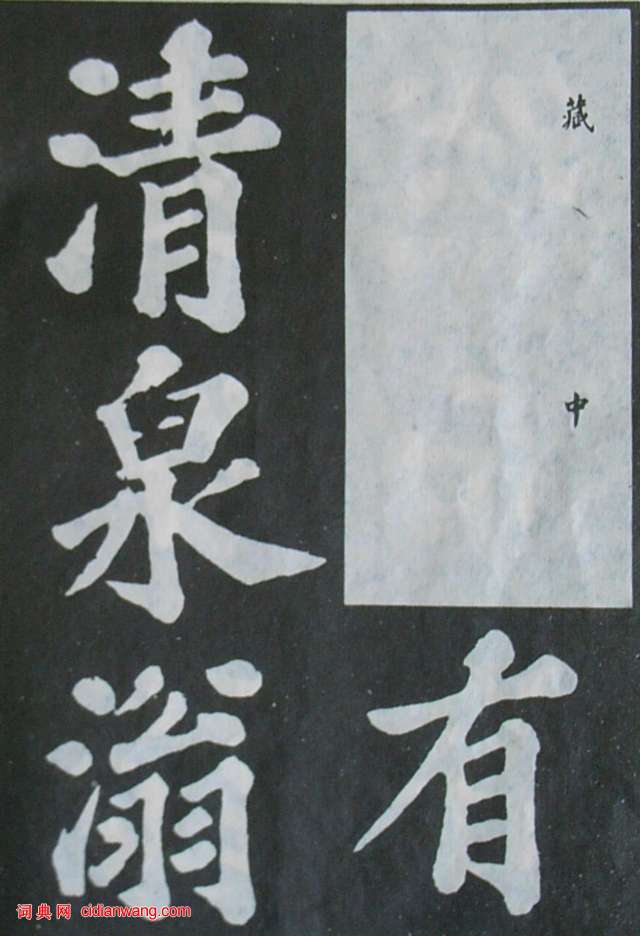 藏、中
有
清泉滃
词典网 cidianwang.com